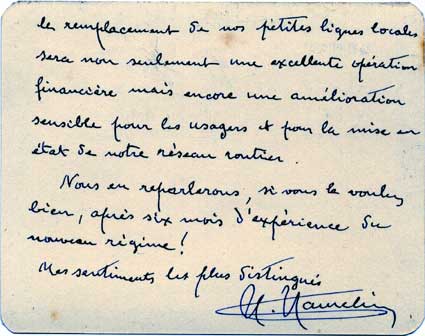 le remplacement de nos petites lignes locales
sera non seulement une excellente opération
financière mais encore une amélioration
sensible pour les usagers et pour la mise en
état de notre réseau routier.
Nous en reparlerons, si vous le voulez
bien, après six mois d'expérience du
nouveau régime!
Mes sentiments les plus distingués